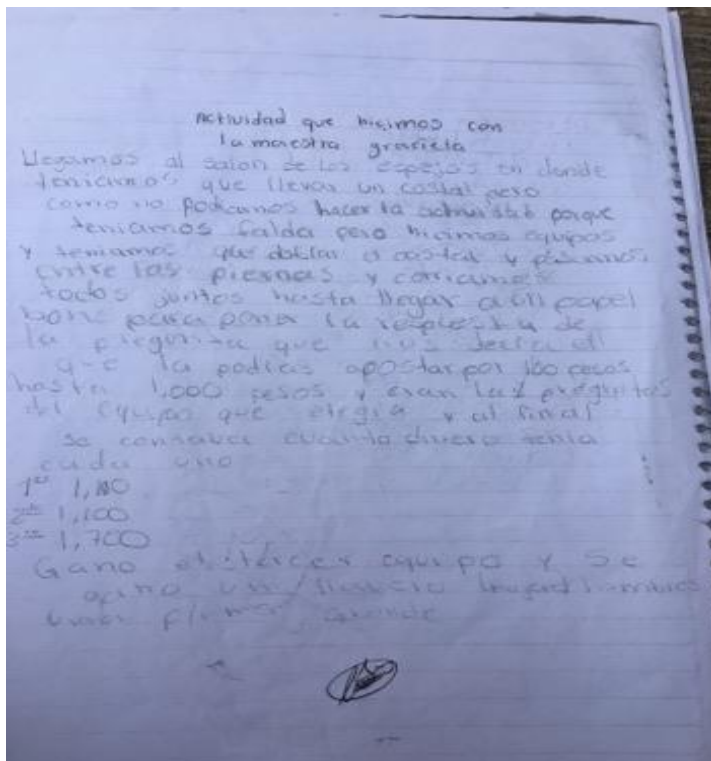 Actividad que hicimos con
la maestra graciela
Llegamos al salon de los espejos en donde
teniamos que llevar un costal pero
como no podiamos hacer la actividad porque
teniamos falda pero hicimos equipos
y teniamos que doblar el costal y
entre las piernas y corriamos
todos juntos hasta llegar a un papel
para poner la respuesta de
la pregunta que nos decia
que la podias apostar por 100 pesos
hasta 1,000 pesos y eran las preguntas
del equipo que elegia y al final
se contaba cuanto dinero tenia
cada uno
1º
1,100
1,700
Gano el tercer equipo y se
gano un